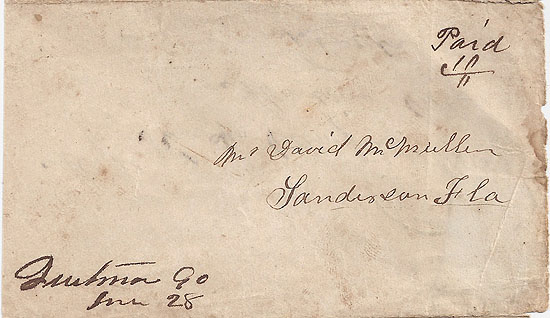 Paid
10
Mr David McMullen
Sanderson Fla
Quitman Ga
28